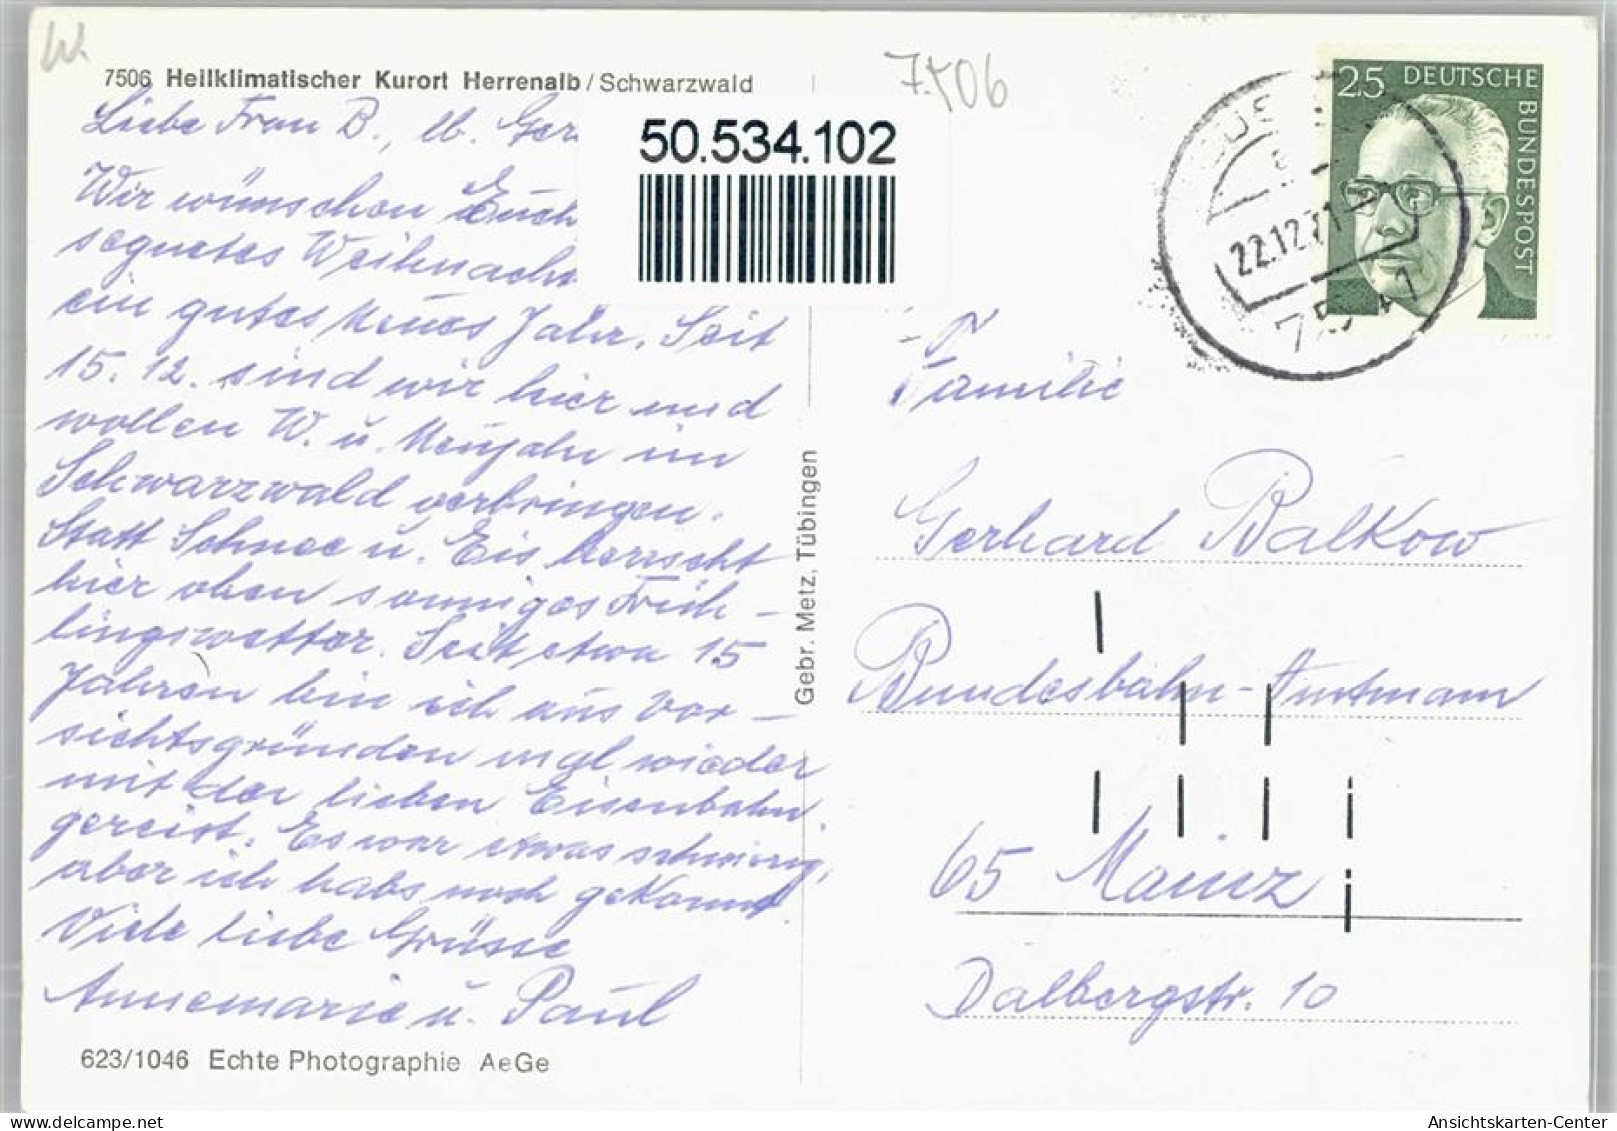 W.
7506 Heilklimatischer Kurort Herrenalb / Schwarzwald
7506
Liebe Frau B., lb. Ger
50.534.102
Wir wünschen Euch
segnetes Weihnachts
ein gutes Neues Jahr. Seit
15. 12. sind wir hier und
wollen W. u. Neujahr im
Schwarzwald verbringen.
Statt Schnee u. Eis herrscht
hier oben sonniges Früh-
lingswetter. Seit etwa 15
Jahren bin ich aus Vor-
sichtsgründen mal wieder
mit der lieben Eisenbahn
gereist. Es war etwas schwierig,
aber ich habs noch gekonnt.
Viele liebe Grüsse
Annemarie u. Paul
623/1046 Echte Photographie AeGe
Gebr. Metz, Tübingen
25 DEUTSCHE
BUNDESPOST
22.12.71
Familie
Gerhard Balkow
Bundesbahn-Amtmann
65 Mainz
Dalbergstr. 10
Ansichtskarten-Center